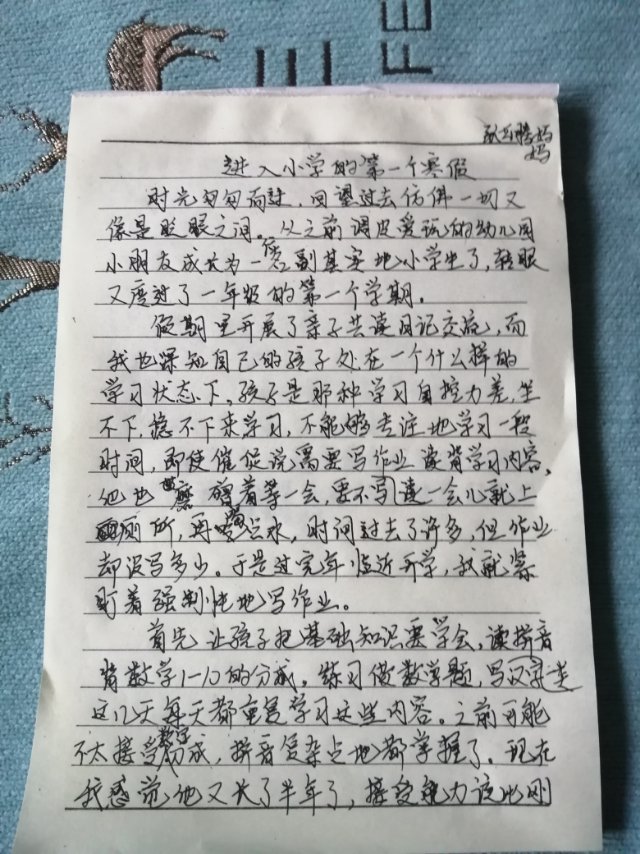 FE
妈
妈
进入小学的第一个寒假
时光匆匆而过,回望过去仿佛一切又
像是眨眼之间。从之前调皮爱玩的幼儿园
小朋友成长为一名副其实地小学生了,转眼
又度过了一年级的第一个学期。
假期里开展了亲子共读日记交流,而
我也深知自己的孩子处在一个什么样的
学习状态下,孩子是那种学习自控力差,坐
不下,稳不下来学习,不能够专注地学习一段
时间,即使催促说需要写作业读背学习内容,
他也磨蹭着等一会,要不写读一会儿就上
厕所,再喝点水,时间过去了许多,但作业
却没写多少。于是过完年临近开学,我就紧
盯着强制性地写作业。
首先让孩子把基础知识要学会,读拼音
背数学1-10的分成。练习做数学题,写汉字是
这几天每天都重复学习这些内容。之前可能
不太接受数字分成,拼音复杂点地都掌握了。现在
我感觉他又大了半年了,接受能力该比刚